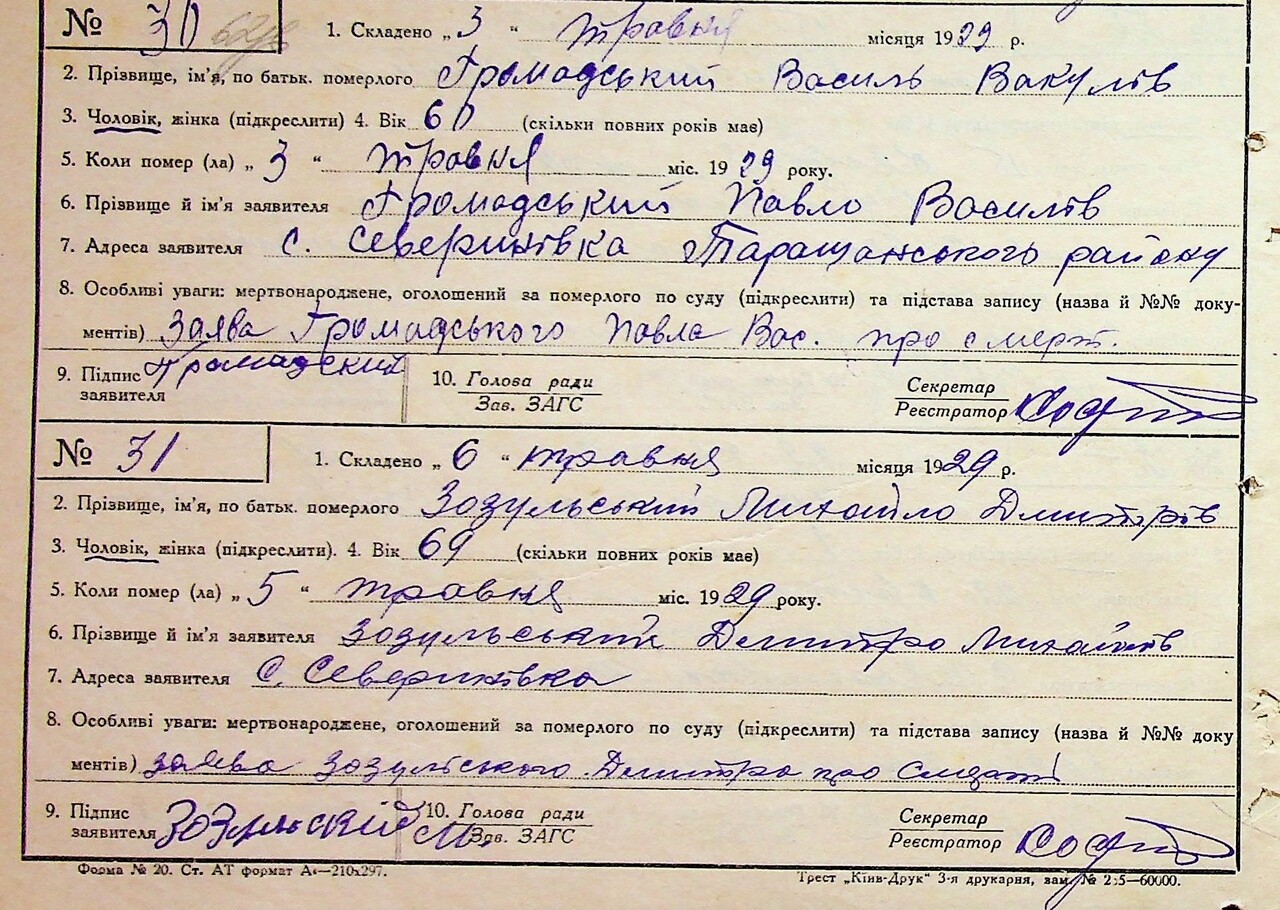 № 30 1. Складено „3“ травня місяця 1929 р.
2. Прізвище, ім'я, по батьк. померлого Громадський Василь Вакулів
3. Чоловік, жінка (підкреслити) 4. Вік 60 (скільки повних років має)
5. Коли помер (ла) „3“ травня міс. 1929 року.
6. Прізвище й ім'я заявителя Громадський Павло Василів
7. Адреса заявителя с. Северинівка Таращанського району
8. Особливі уваги: мертвонароджене, оголошений за померлого по суду (підкреслити) та підстава запису (назва й №№ доку-
ментів) Заява Громадського Павла Вас. про смерт.
9. Підпис Громадский 10. Голова ради Секретар
заявителя Зав. ЗАГС Реєстратор
№ 31 1. Складено „6“ травня місяця 1929 р.
2. Прізвище, ім'я, по батьк. померлого Зозульський Михайло Дмитрів
3. Чоловік, жінка (підкреслити). 4. Вік 69 (скільки повних років має)
5. Коли помер (ла) „5“ травня міс. 1929 року.
6. Прізвище й ім'я заявителя Зозульський Дмитро Михайлів
7. Адреса заявителя С. Северинівка
8. Особливі уваги: мертвонароджене, оголошений за померлого по суду (підкреслити) та підстава запису (назва й №№ доку
ментів) заява Зозульського Дмитра про смерть
9. Підпис Зозульский 10. Голова ради Секретар
заявителя Зав. ЗАГС Реєстратор
Форма № 20. Ст. АТ формат А4—210x297. Трест „Київ-Друк“ 3-я друкарня, зам. № 235—60000.